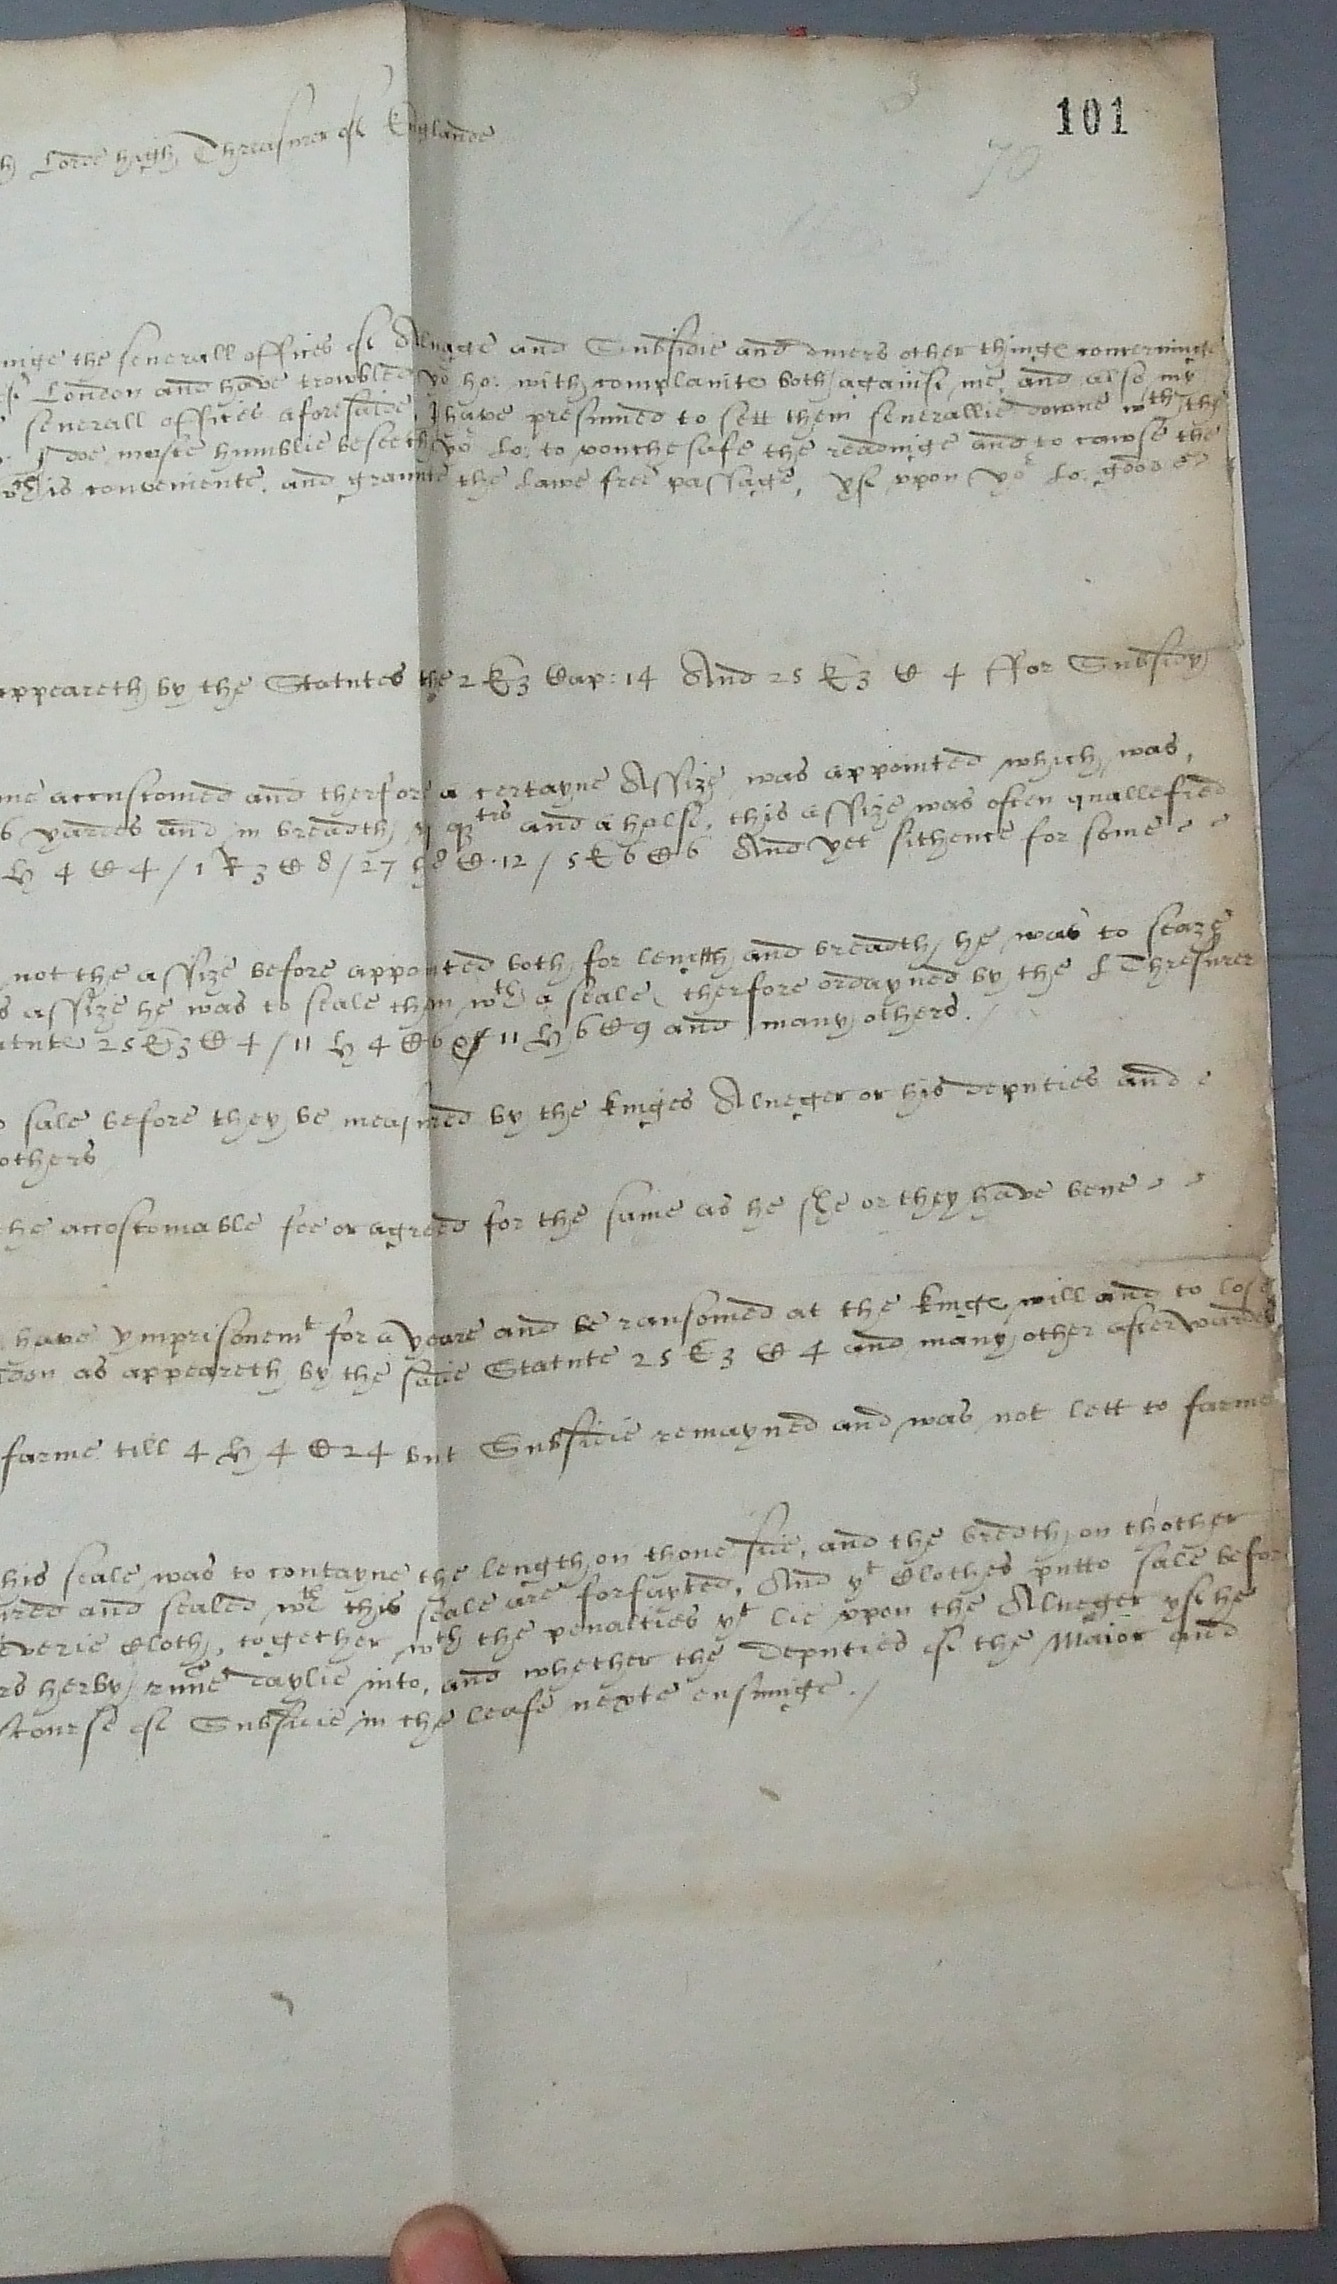 101
70
h Lorde high Threasurer of Englande
nige the severall offices of Alnage and Subsidie and divers other thinge concerninge
of London and have trowbled yor ho: with complainte both against me and also my
severall offices aforesaide, I have presumed to sett them severallie downe wth the
I doe moste humblie beseech yor lo: to vouchesafe the readinge and to cawse the
is conveniente, and graunte the Lawe free passage, yf vpon yor lo: good
appeareth by the Statutes the 2 E 3 Cap: 14 And 25 E 3 C 4 ffor Subsidy
me accustomed and therfore a certayne Assize was appointed which was,
6 yardes and in breadth qrters and a halfe, this assize was often quallefied
H 4 C 4 / 1 R 3 C 8 / 27 H 8 C. 12 / 5 E 6 C 6 And yet sithence for some
not the assize before appointed both for length and breadth, he was to seaze
s assize he was to seale them wth a seale therfore ordayned by the L Thresurer
atute 25 E 3 C 4 / 11 H 4 C 6 11 H 6 C 9 and many others.
sale before they be measured by the kinges Alneger or his deputies and
others
the accostomable fee or agreed for the same as he she or they have bene
have ymprisonemt for a yeare and be ransomed at the kinge will and to lose
don as appeareth by the saide Statute 25 E 3 C 4 and many other afterwardes
farme till 4 H 4 C 24 but Subsidie remayned and was not lett to farme
his seale was to contayne the length on thone side, and the bredth on thother
ured and sealed wth this seale are forfayted, And yt Clothes putto sale befor
everie Cloth, together wth the penalties yt lie vpon the Alneger yf he
rs herby runne daylie into, and whether the deputies of the Maior and
scourse of Subsidie in the leafe nexte ensuinge./